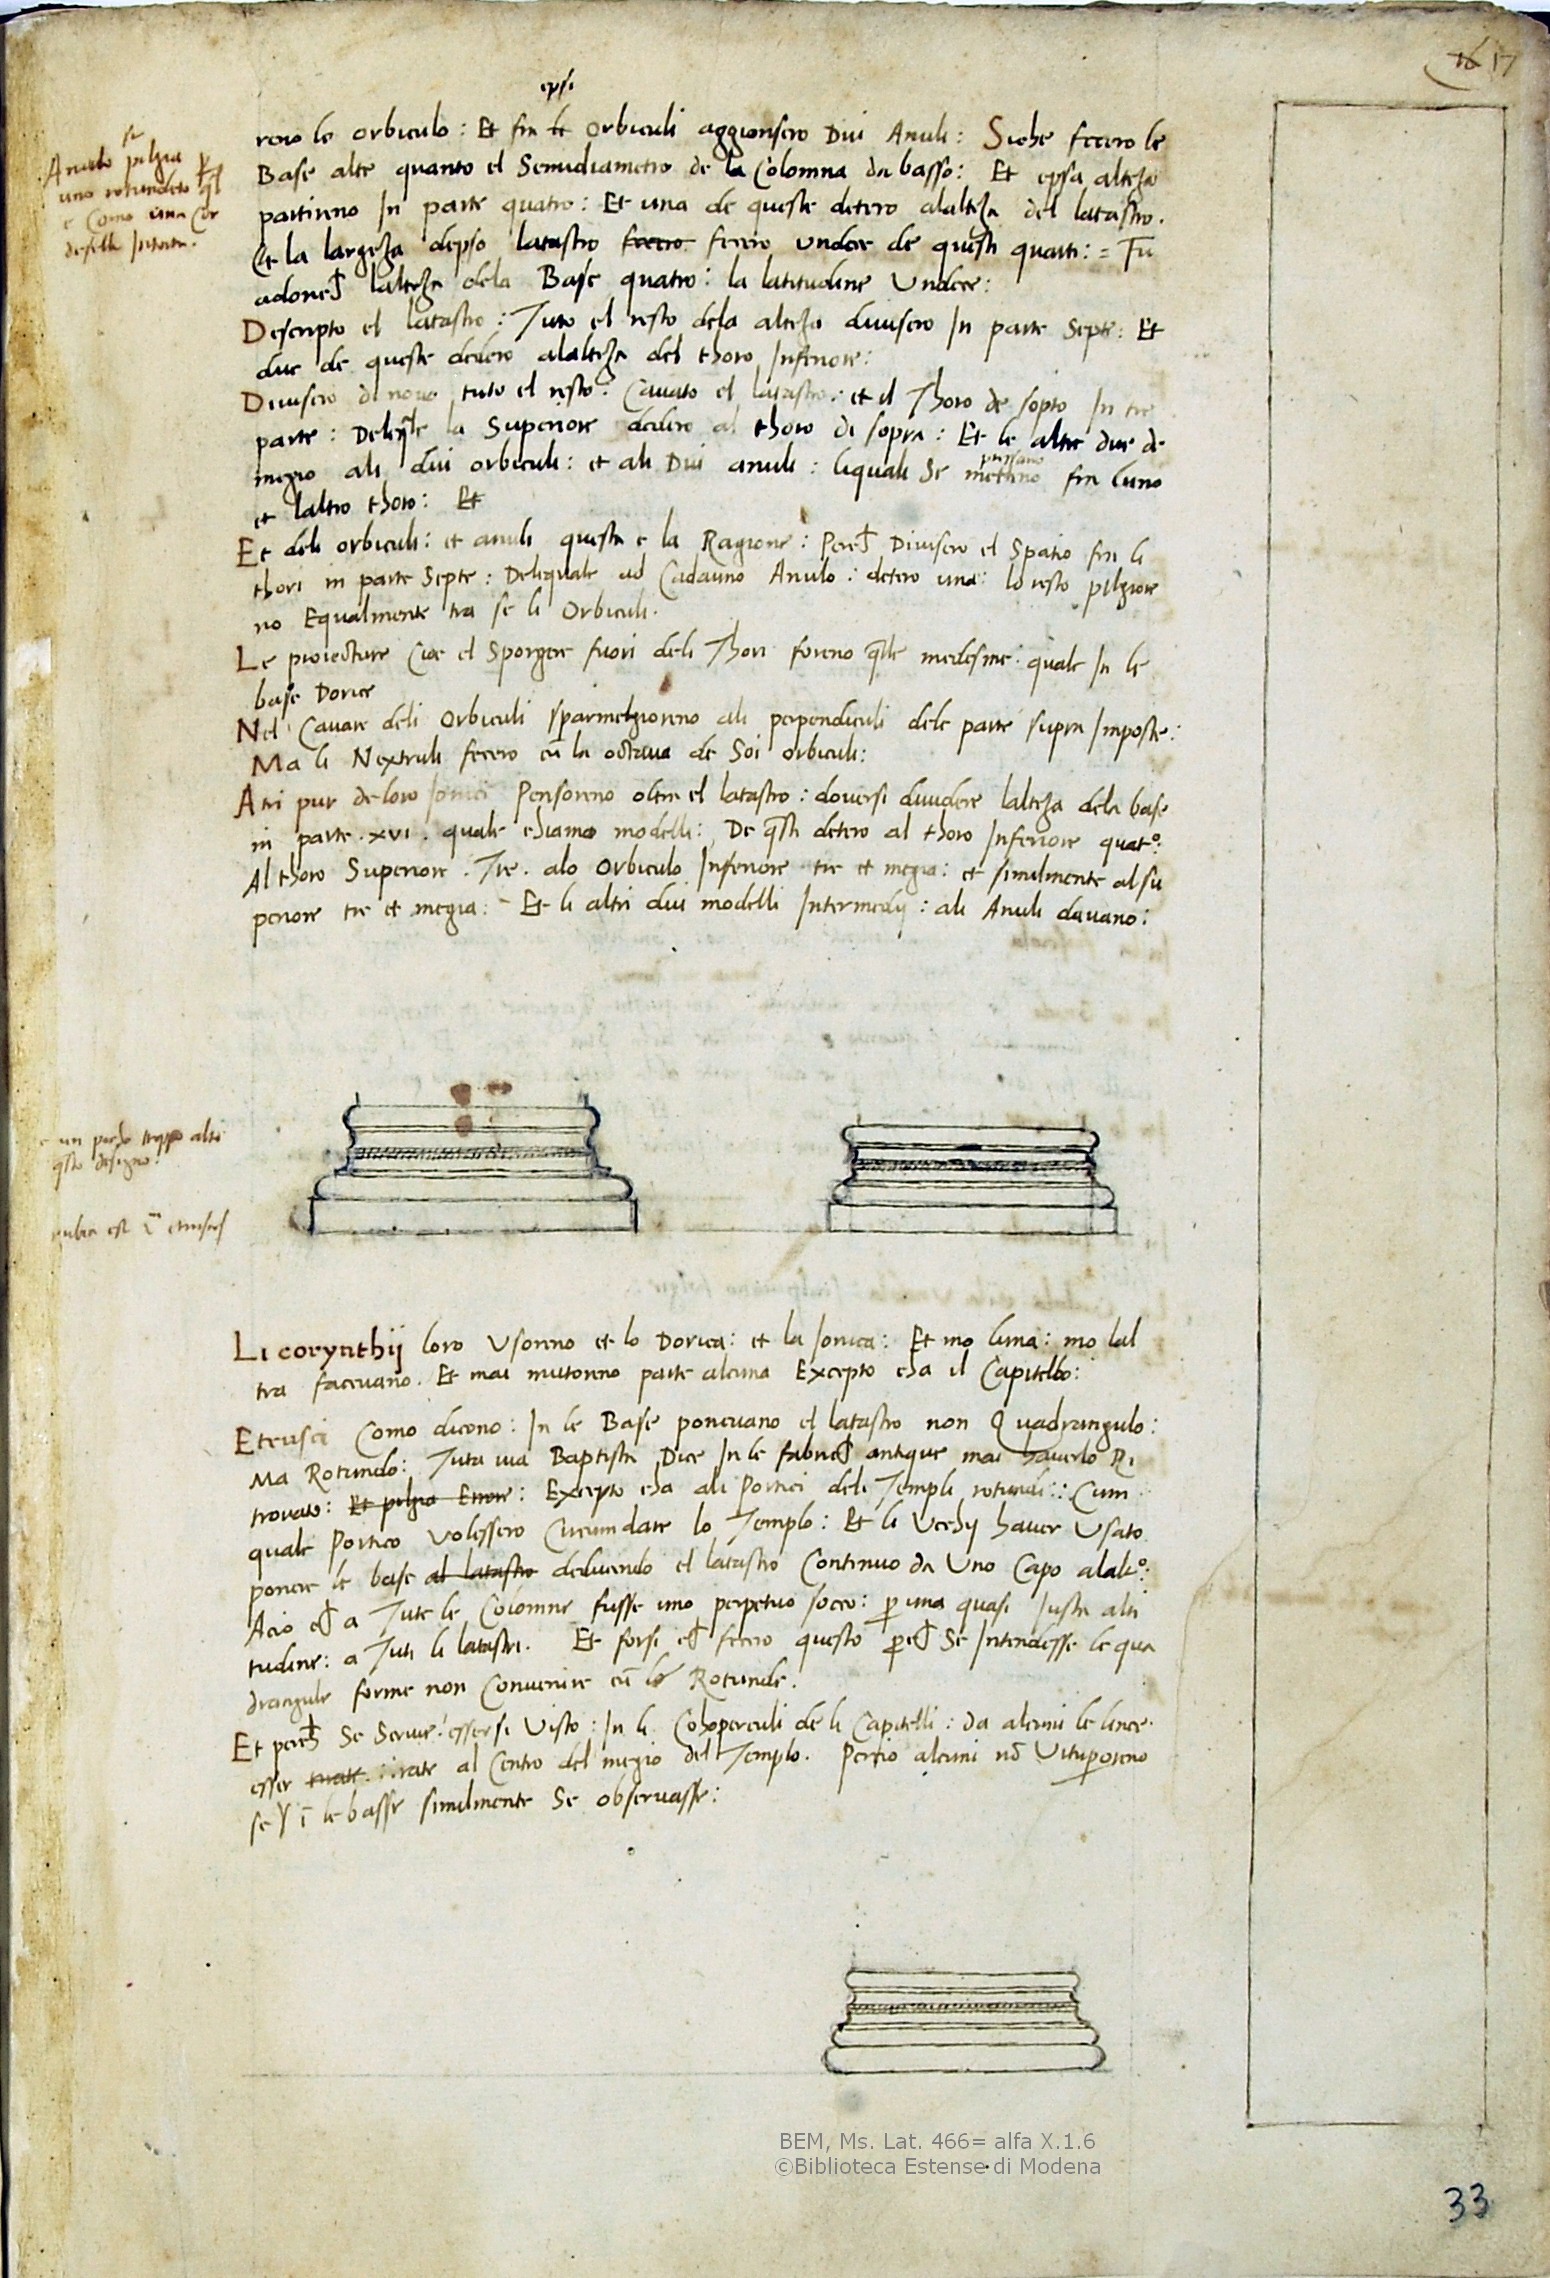 16 17
epsi
reno lo orbiculo: Et fra le Orbiculi aggionsero Dui Anuli: Siche fecero le
Base alte quanto el Semidiametro de la Colomna da basso: Et epsa alteza
partireno In parte quatro: Et una de queste detero alalteza del latastro.
Et la largeza depso latastro fecero fecero undece de questi quarti: = Fu
adonch lalteza dela Base quatro: la latitudine Undece:
Descripto el latastro: Tuto el resto dela alteza divisero In parte Septe: Et
due de queste dedero alalteza del thoro Inferiore:
Divisero di novo tuto el resto: Cavato el latastro: et il Thoro de sopto In tre
parte: Delequale la Superiore dedero al thoro di sopra: Et le altre due de
megio ali dui orbiculi: et ali Dui anuli: liquali Se mettino fra luno
et laltro thoro: Et
Et deli orbiculi: et anuli questa e la Ragione: Perch Divisero el Spatio fra li
thori in parte Septe: Delequale ad Cadauno Anulo: detero una: lo resto pilgiore
no Equalmente tra se li Orbiculi.
Le proiecture Cioe el Sporgere fuori deli Thori foreno qlle medesme quale In le
base Dorice
Nel Cavare deli Orbiculi sparmelgioreno ali perpendiculi dele parte supra Imposte:
Ma li Nextruli fecero cu la octava de Soi orbiculi:
Atri pur de loro Ionici Pensoreno oltre el latastro: doversi dividere lalteza dela base
in parte .xvi. quale chiamo modelli: De qsti detero al thoro Inferiore quatº:
Al thoro Superiore. Tre. alo Orbiculo Inferiore tre et megia: et similmente al su
periore tre et megia: - Et li altri dui modelli Intermedij: ali Anuli davano:
un pocho troppo alto
qsto designo.
Li corynthij loro Usorino et lo Dorica: et la Ionica: Et mo luna: mo lal
tra facevano. Et mai mutoreno parte alcuna Excepto cha il Capitello:
Etrusci Como dicono: In le Base ponevano el latastro non Quadrangulo:
Ma Rotundo: Tuta via Baptista Dice In le fabrich antique mai haverlo Ri
trovato: Et pilgia Errore: Excepto cha ali Portici deli Templi rotundi: Cum
quale Portico volessero Circumdare lo Templo: Et li Vechij haver Usato
ponere le base al latastro deducendo el latastro Continuo da Uno Capo alaltº:
Acio ch a Tute le Colomne fusse uno perpetuo socco: p una quasi Iusta alti
tudine: a Tuti li latastri. Et forsi ch fecero questo perch Se Intendesse le qua
drangule forme non Convenire cu le Rotunde.
Et perch Se Scrive essersi Visto: In li Cohoperculi de li Capitelli: da alcuni le linee
esser al Centro del megio del Templo. Percio alcuni no Vituporeno
se i le basse similmente Se observasse:
BEM, Ms. Lat. 466= alfa X.1.6
©Biblioteca Estense di Modena
33